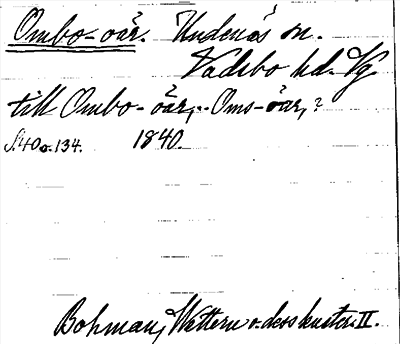 Ombo-öar. Undenäs sn.
Vadsbo hd. Vg.
till Ombo-öar, .. Oms-öar, ?
S. 40 o. 134. 1840.
Bohman, Wettern o. dess kuster. II.